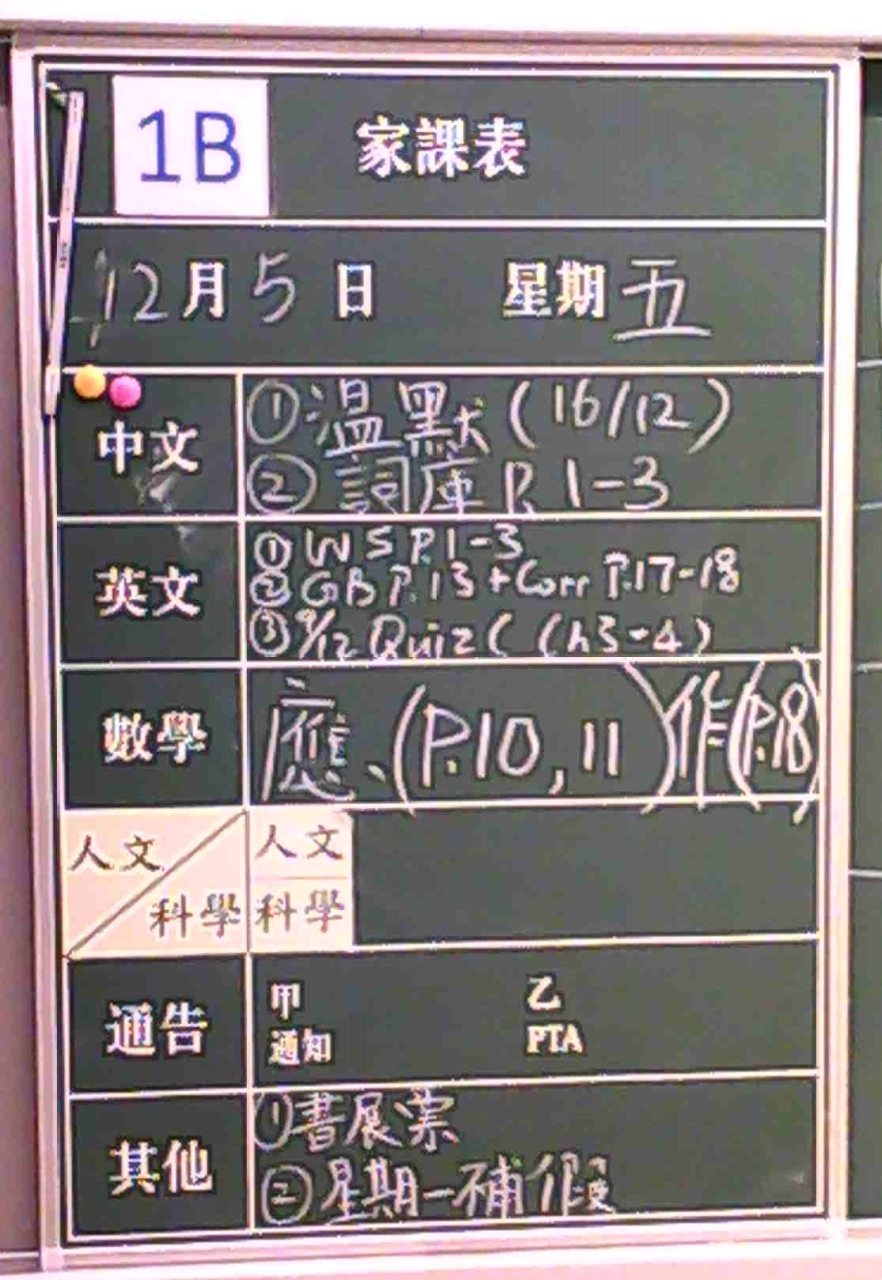 1B 家課表
12月5日 星期五
中文
①溫默(16/12)
②詞庫P.1-3
英文
①WS P.1-3
②GB P.13+Corr P.17-18
③9/12 Quiz (Ch3-4)
數學
應、(P.10,11)作(P.18)
人文 人文
科學 科學
通告
甲 乙
通知 PTA
其他
①書展票
②星期一補假